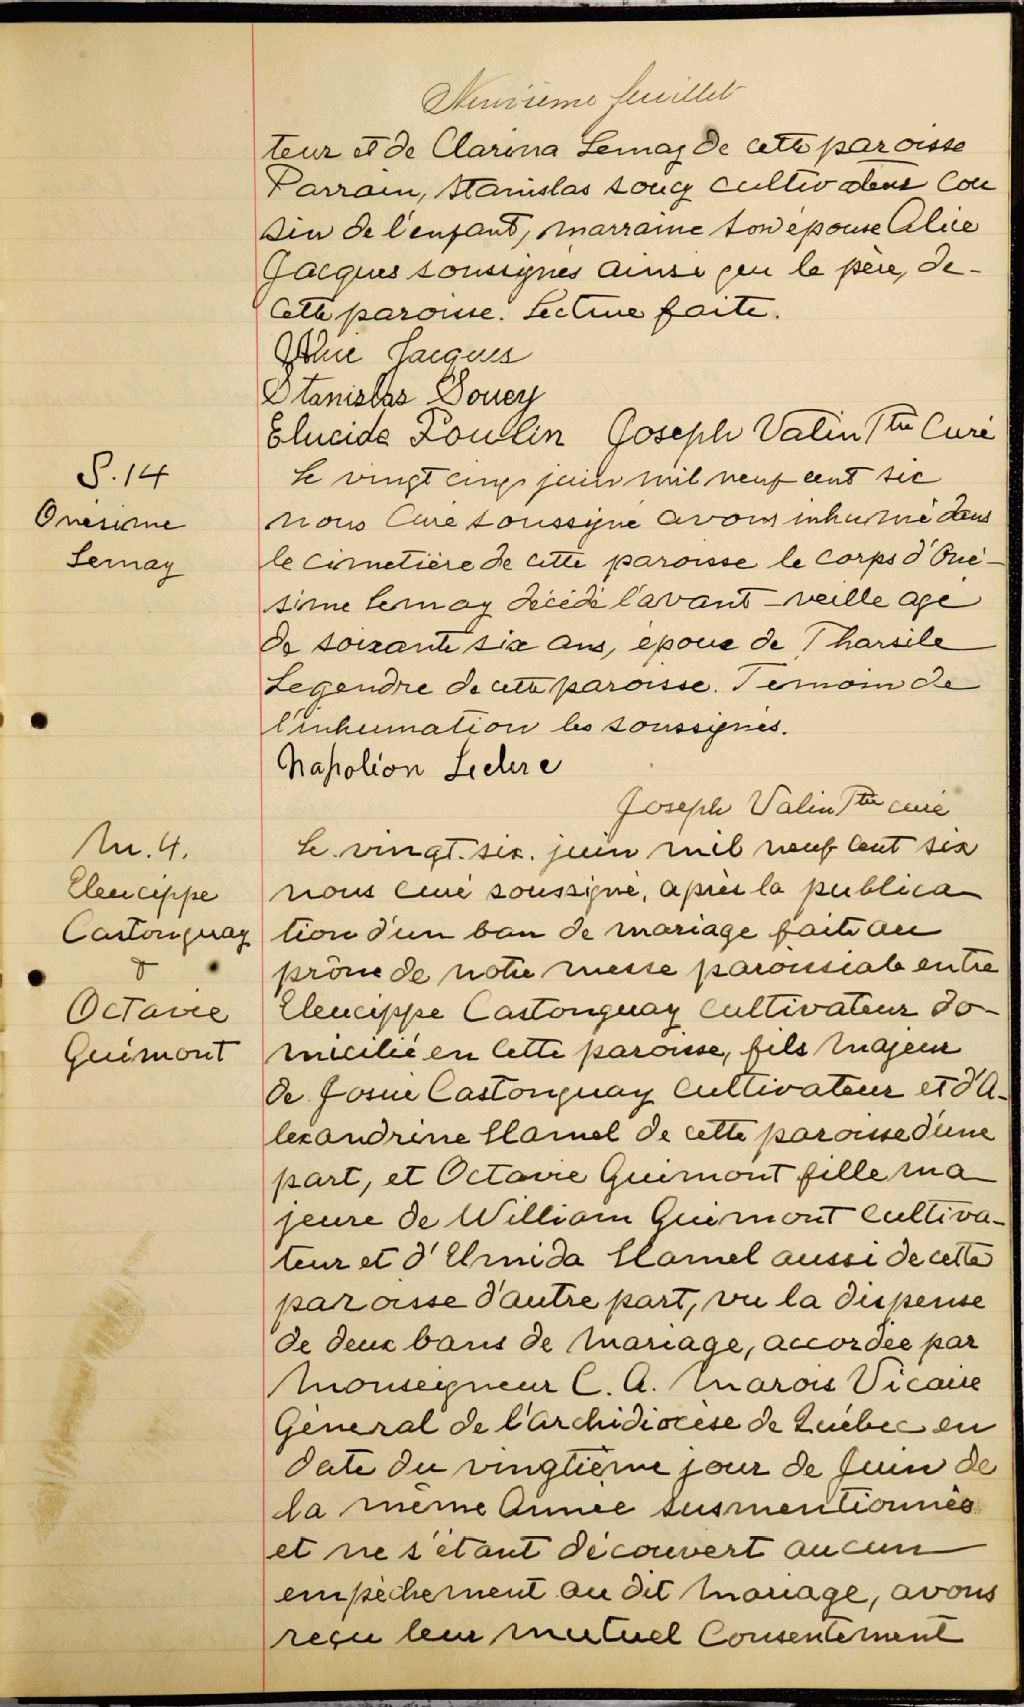 Neuvième feuillet
teur et de Clarina Lemay de cette paroisse
Parrain, Stanislas Soucy cultivateur cou
sin de l'enfant, marraine son épouse Alice
Jacques soussignés ainsi que le père, de-
cette paroisse. Lecture faite.
Alice Jacques
Stanislas Soucy
Elucide Poulin Joseph Valin Ptre Curé
S. 14
Onésime
Lemay
le vingt cinq juin mil neuf cent six
nous Curé soussigné avons inhumé dans
le cimetière de cette paroisse le corps d'Oné-
sime Lemay décédé l'avant-veille agé
de soixante six ans, époux de Tharsile
Legendre de cette paroisse. Témoin de
l'inhumation les soussignés.
Napoléon Leclerc
Joseph Valin Ptre curé
M. 4.
Eleucippe
Castonguay
&
Octavie
Guimont
le vingt. six. juin mil neuf cent six
nous curé soussigné, après la publica
tion d'un ban de mariage faite au
prône de notre messe paroissiale entre
Eleucippe Castonguay cultivateur do-
micilié en cette paroisse, fils majeur
de Josué Castonguay cultivateur et d'A-
lexandrine Hamel de cette paroisse d'une
part, et Octavie Guimont fille ma
jeure de William Guimont cultiva-
teur et d'Ernida Hamel aussi de cette
paroisse d'autre part, vu la dispense
de deux bans de mariage, accordée par
Monseigneur C. A. Marois Vicaire
Géneral de l'archidiocèse de Québec en
date du vingtième jour de Juin de
la même année susmentionnée
et ne s'étant découvert aucun
empêchement au dit mariage, avons
reçu leur mutuel Consentement